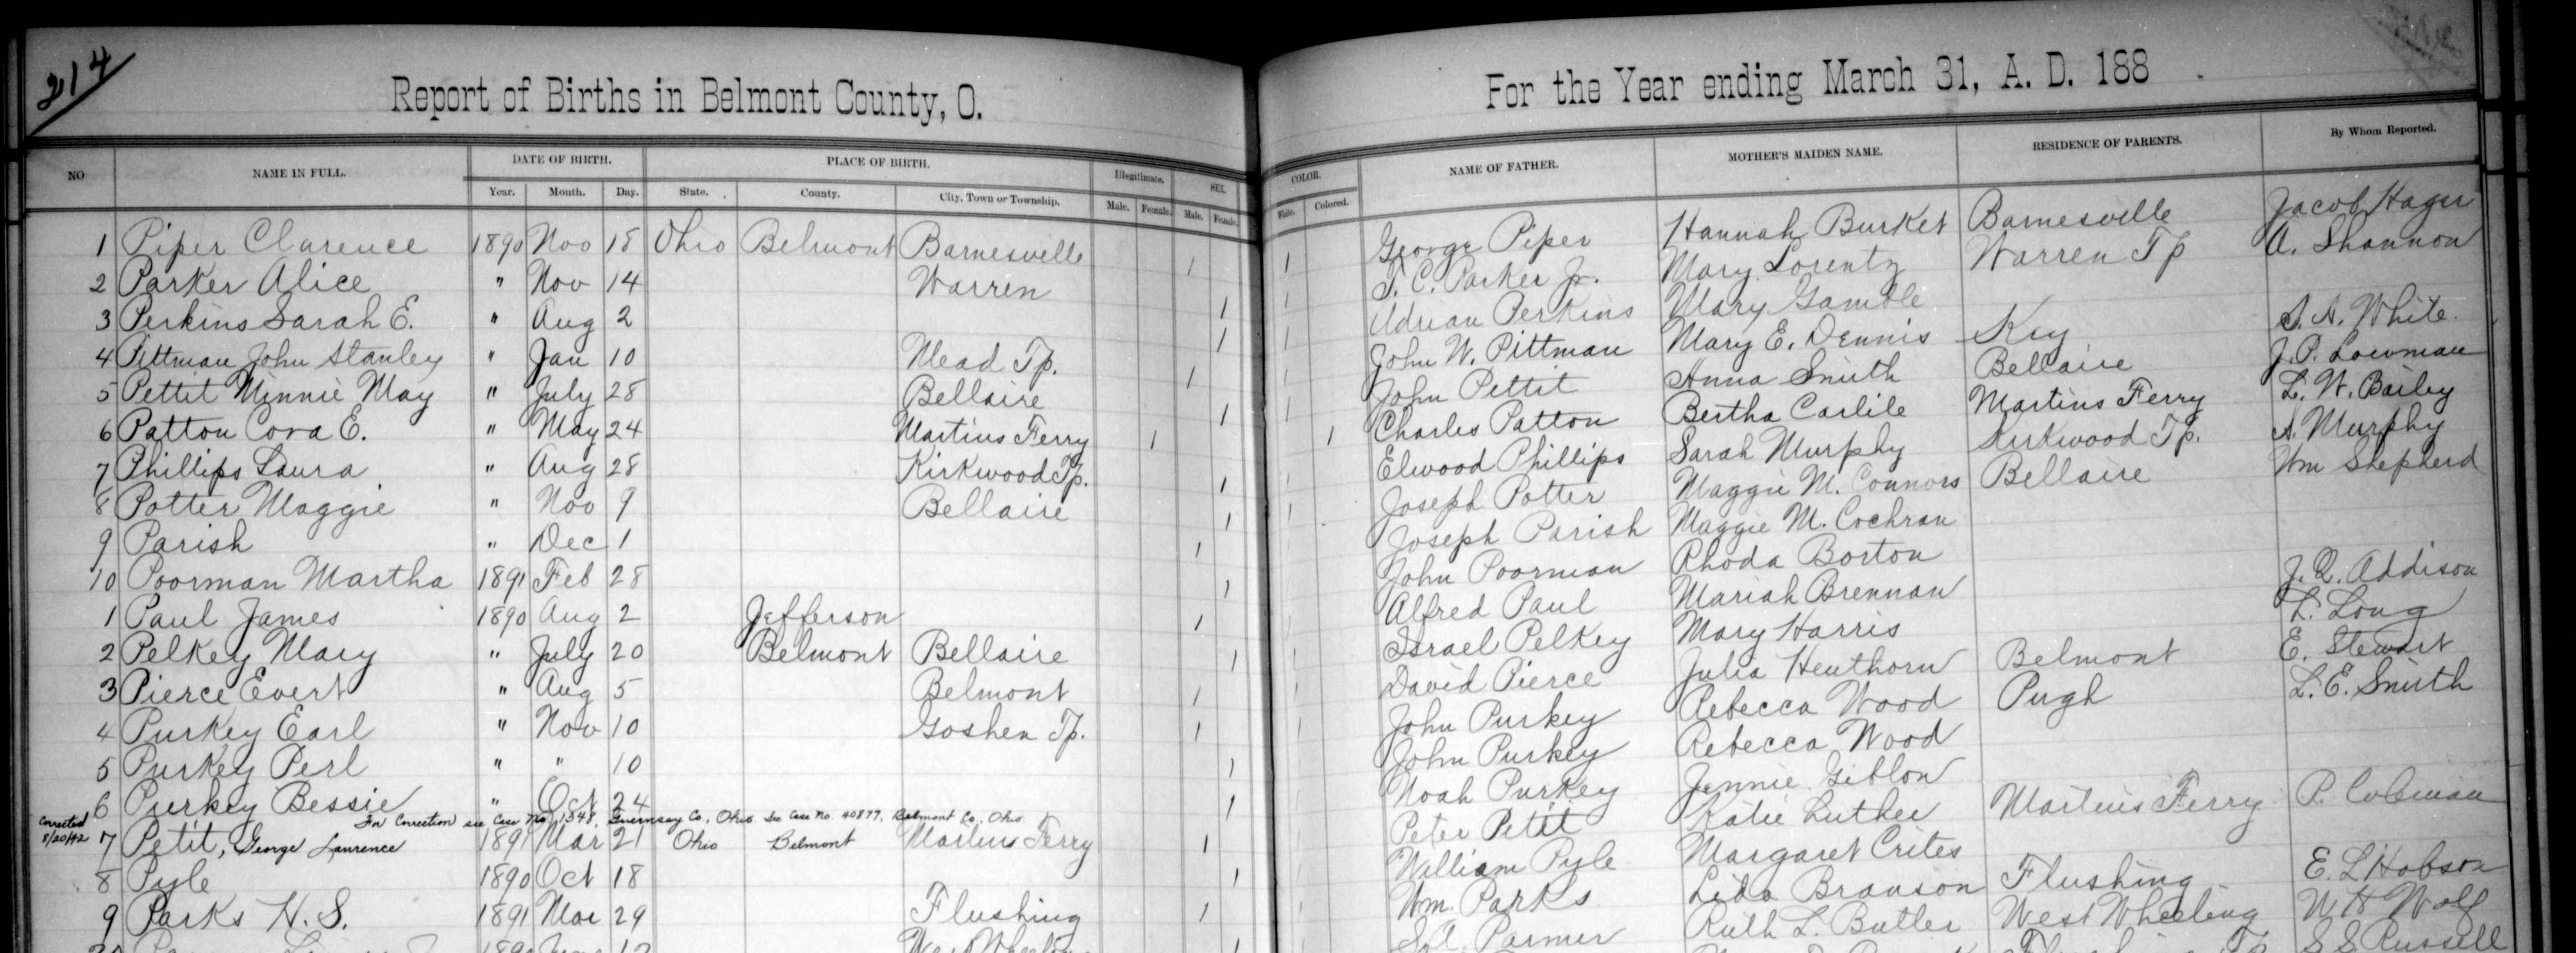 214
Report of Births in Belmont County, O. For the Year ending March 31, A. D. 188
NO NAME IN FULL. DATE OF BIRTH. PLACE OF BIRTH. Illegitimate. SEX. COLOR. NAME OF FATHER. MOTHER'S MAIDEN NAME. RESIDENCE OF PARENTS. By Whom Reported.
Year. Month. Day. State. County. City, Town or Township. Male. Female. Male. Female. White. Colored.
1 Piper Clarence 1890 Nov 18 Ohio Belmont Barnesville 1 1 George Piper Hannah Burket Barnesville Jacob Hager
2 Parker Alice " Nov 14 Warren 1 1 T. C. Parker Jr. Mary Lorentz Warren Tp A. Shannon
3 Perkins Sarah E. " Aug 2 1 1 Adrian Perkins Mary Gamble
4 Pittman John Stanley " Jan 10 Mead Tp. 1 1 John W. Pittman Mary E. Dennis Key S. A. White
5 Pettit Minnie May " July 28 Bellaire 1 1 John Pettit Anna Smith Bellaire J. P. Lowman
6 Patton Cora E. " May 24 Martins Ferry 1 1 Charles Patton Bertha Carlile Martins Ferry L. W. Bailey
7 Phillips Laura " Aug 28 Kirkwood Tp. 1 1 Elwood Phillips Sarah Murphy Kirkwood Tp. A. Murphy
8 Potter Maggie " Nov 9 Bellaire 1 1 Joseph Potter Maggie M. Connors Bellaire Wm Shepherd
9 Parish " Dec 1 1 1 Joseph Parish Maggie M. Cochran
10 Poorman Martha 1891 Feb 28 1 1 John Poorman Rhoda Borton
1 Paul James 1890 Aug 2 Jefferson 1 Alfred Paul Mariah Brennan J. Q. Addison
2 Pelkey Mary " July 20 Belmont Bellaire 1 1 Israel Pelkey Mary Harris L. Long
3 Pierce Evert " Aug 5 Belmont 1 1 David Pierce Julia Henthorn Belmont E. Stewart
4 Purkey Earl " Nov 10 Goshen Tp. 1 1 John Purkey Rebecca Wood Pugh L. E. Smith
5 Purkey Perl " " 10 1 John Purkey Rebecca Wood
6 Purkey Bessie " Oct 24 1 Noah Purkey Jennie Giblon
For Correction see Case No. 1348, Guernsey Co, Ohio. See Case No. 40877, Belmont Co., Ohio.
Corrected 8/20/42
7 Petit, George Laurence 1891 Mar 21 Ohio Belmont Martins Ferry 1 Peter Petit Katie Luther Martins Ferry P. Coleman
8 Pyle 1890 Oct 18 1 William Pyle Margaret Crites
9 Parks H. S. 1891 Mar 29 Flushing 1 Wm. Parks Lida Branson Flushing E. L Hobson
1890 12 West Wheeling 1 S. A. Parmer Ruth L. Butler West Wheeling W H Wolf
Flushing Tp S S Russell